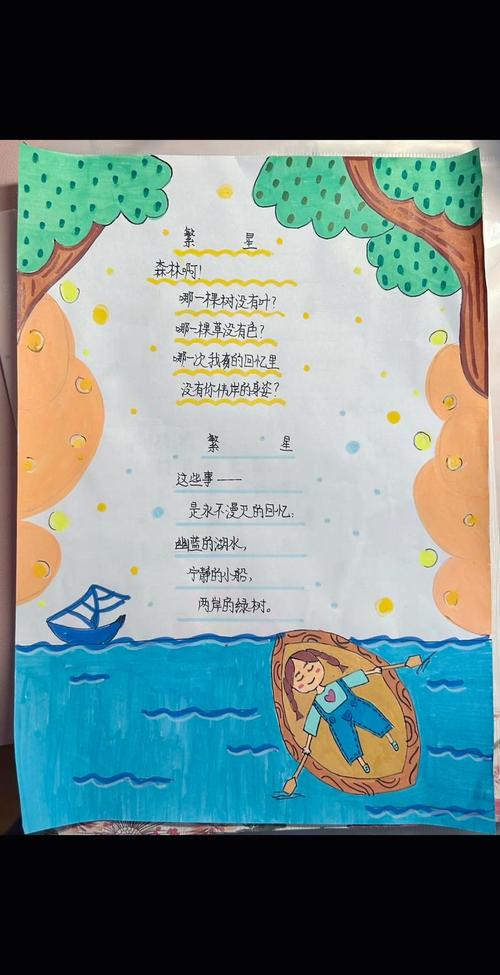 繁 星
森林啊!
哪一棵树没有叶?
哪一棵草没有色?
哪一次我有的回忆里
没有你伟岸的身姿?
繁 星
这些事——
是永不漫灭的回忆:
幽蓝的湖水,
宁静的小船,
两岸的绿树。